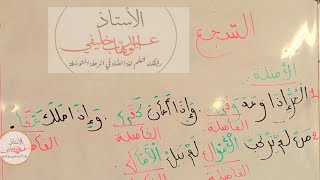 الأستاذ
عبد الوهاب خليفي
السجع
الأمثلة
1 الحر إذا وعد وفى، وإذا أعان كفى، وإذا ملك عفا
الفاصلة الفاصلة الفاصلة
2 من لم يركب الأهوال لم ينل الآمال
الفاصلة الفاصلة